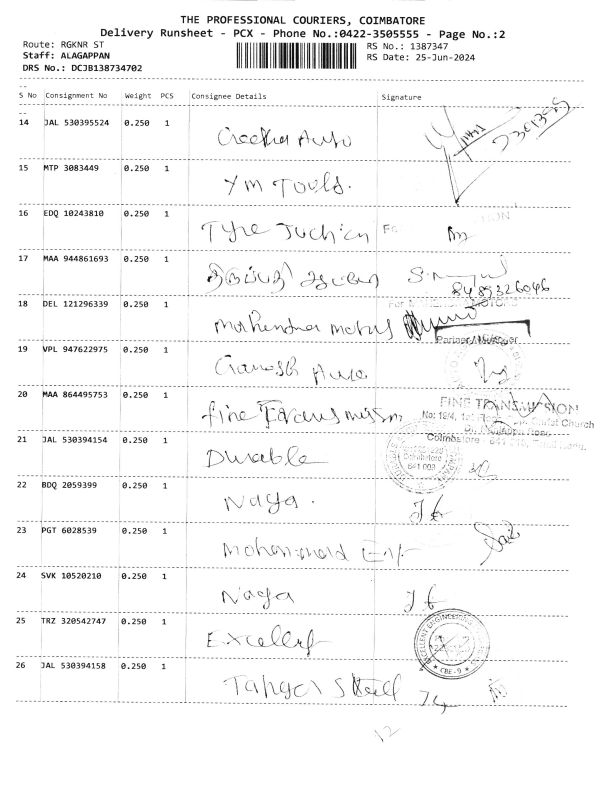 THE PROFESSIONAL COURIERS, COIMBATORE
Delivery Runsheet - PCX - Phone No.:0422-3505555 - Page No.:2
Route: RGKNR ST RS No.: 1387347
Staff: ALAGAPPAN RS Date: 25-Jun-2024
DRS No.: DCJB138734702
S No Consignment No Weight PCS Consignee Details Signature
14 JAL 530395524 0.250 1
Auto
15 MTP 3083449 0.250 1
YM Tools.
16 EDQ 10243810 0.250 1
Tyre
17 MAA 944861693 0.250 1
8489326046
18 DEL 121296339 0.250 1
Mahendra Motors
19 VPL 947622975 0.250 1
Ganesh Auto
20 MAA 864495753 0.250 1
Fine Transmission
FINE TRANSMISSION
21 JAL 530394154 0.250 1
Durable
22 BDQ 2059399 0.250 1
Naga.
23 PGT 6028539 0.250 1
24 SVK 10520210 0.250 1
Naga
25 TRZ 320542747 0.250 1
Excellent
CBE-9
26 JAL 530394158 0.250 1
Steel
12